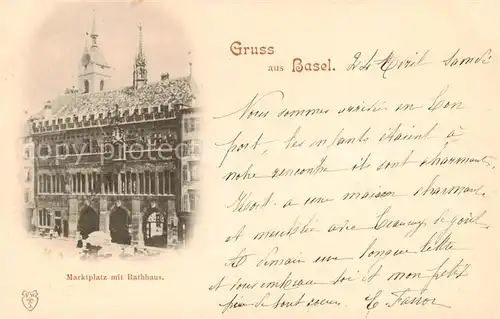 Gruss
aus Basel.
24 Avril Samedi
Nous sommes arrivés en bon
port, les enfants étaient à
notre rencontre ils sont charmants
a une maison charmante
et meublée avec beaucoup de goût
demain une longue lettre
et vous embrasse toi et mon petit
de tout coeur. E.
Marktplatz mit Rathhaus.